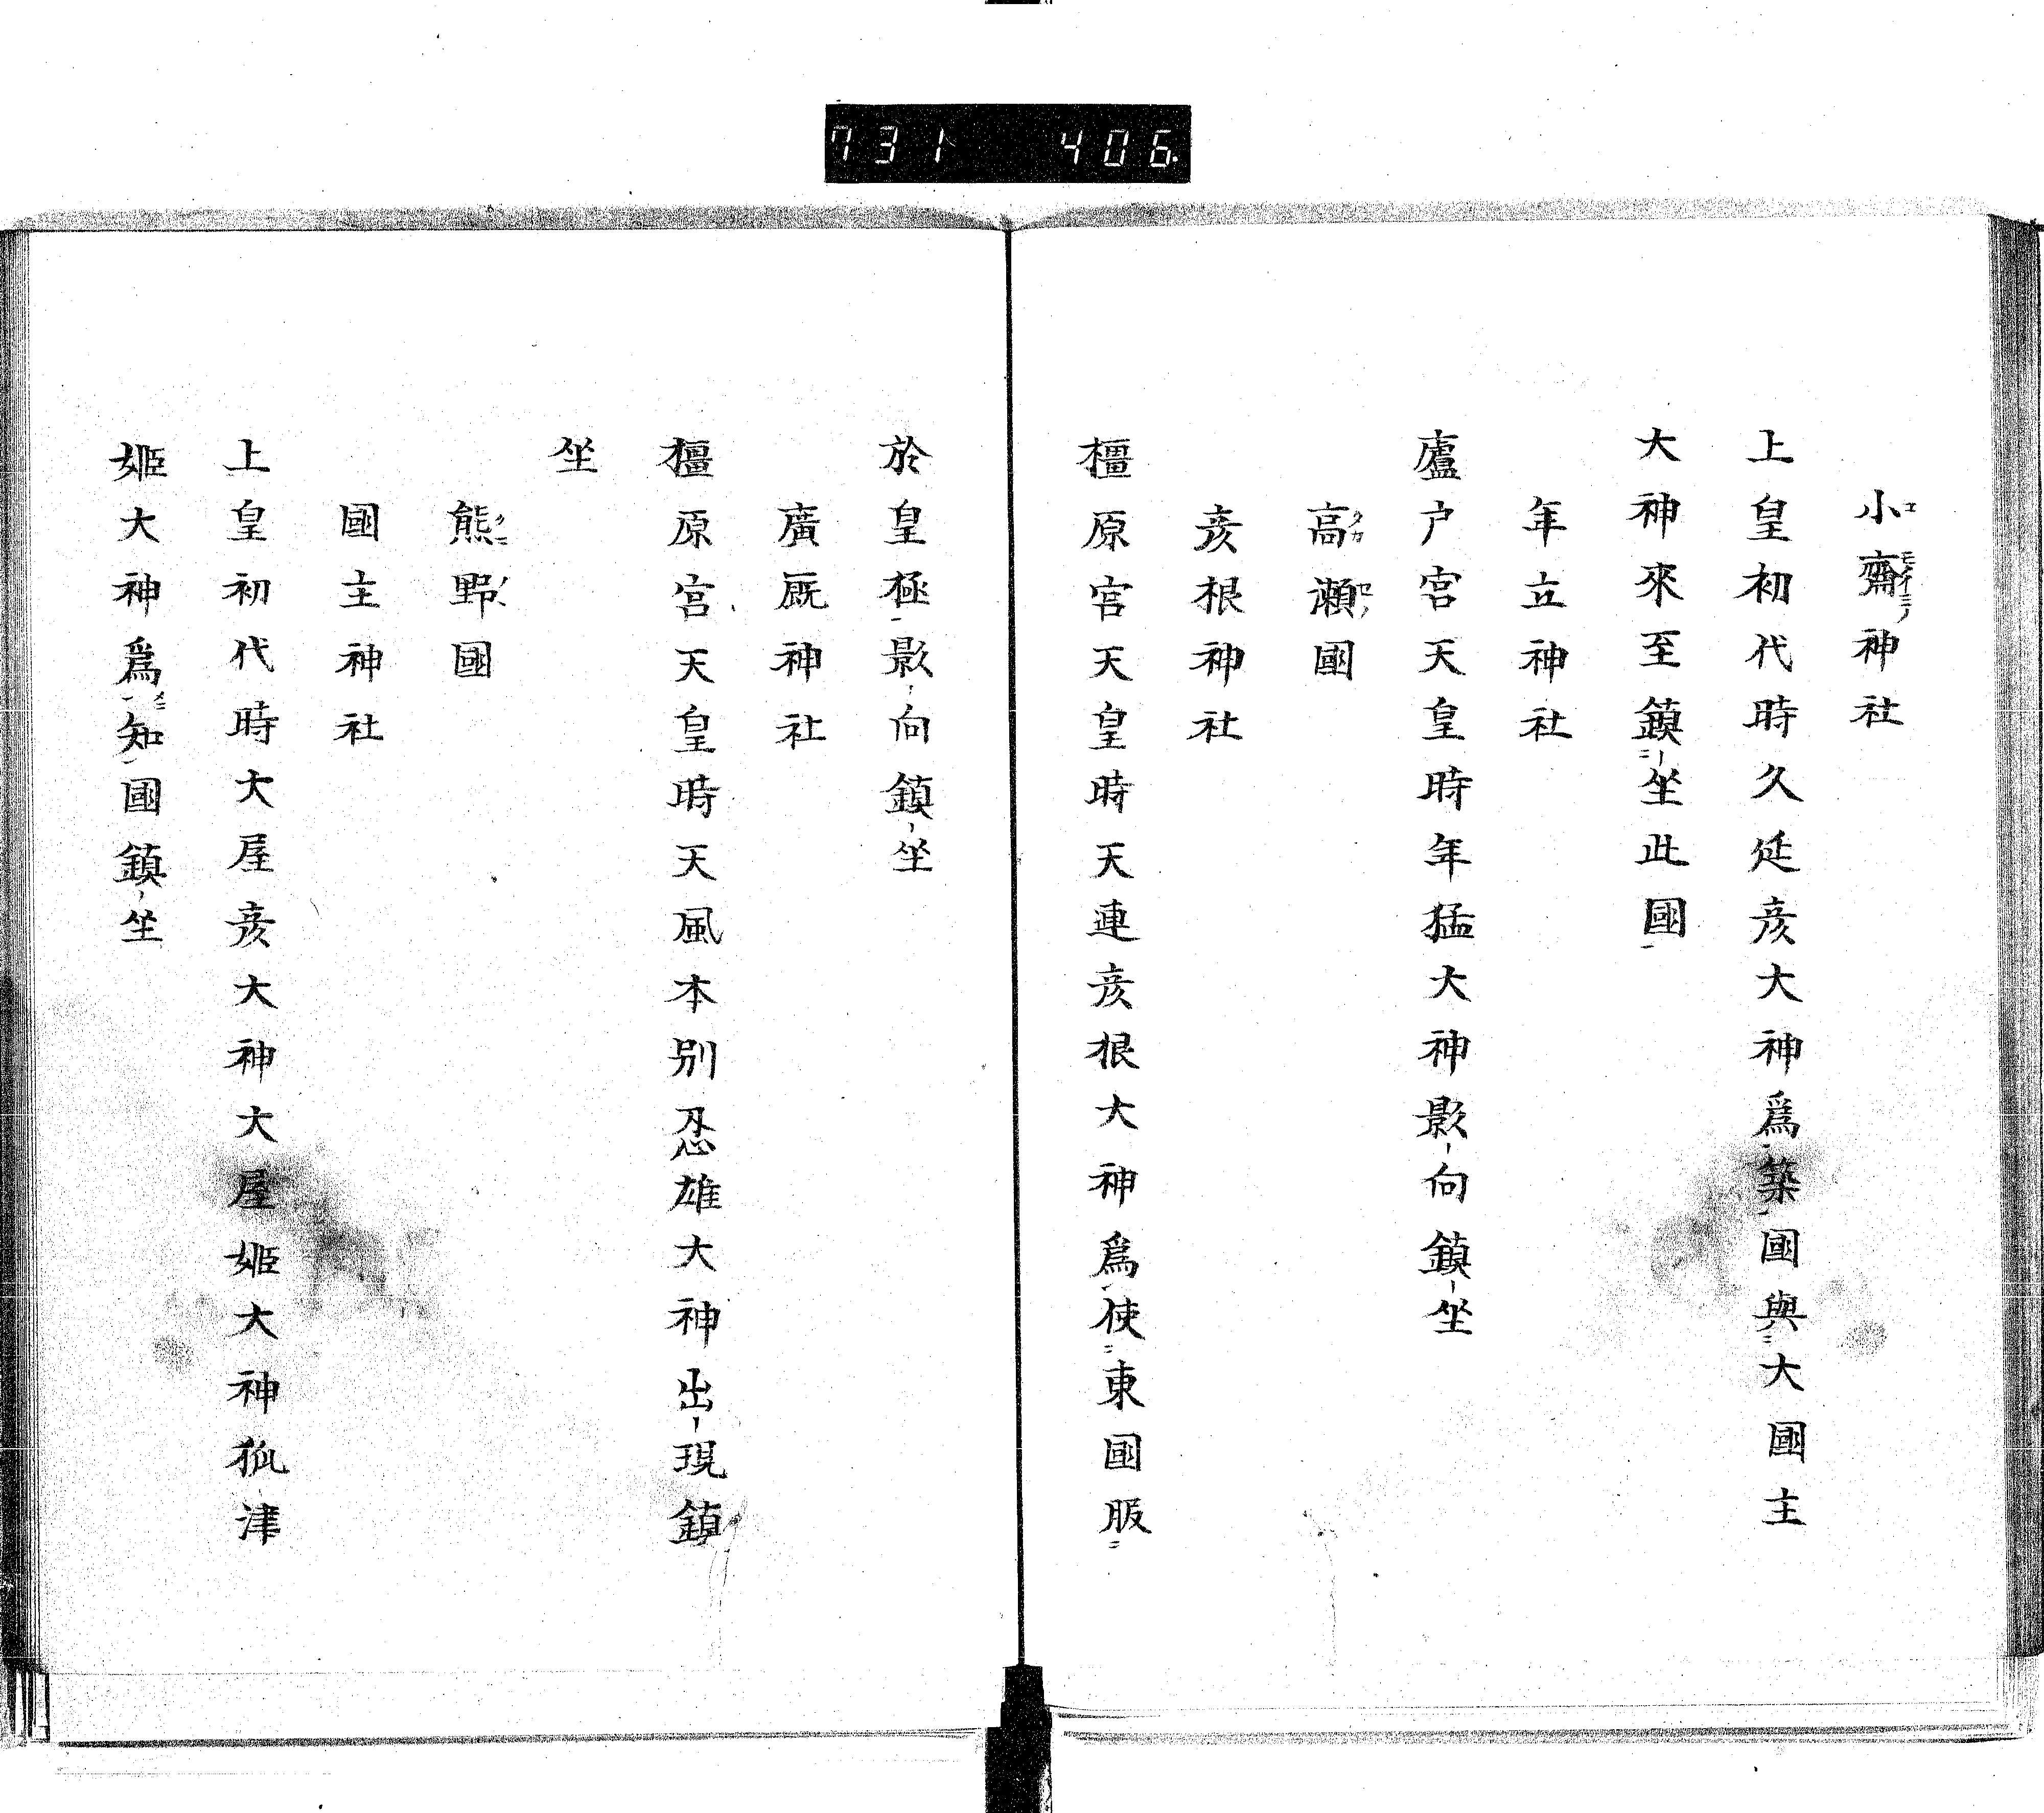 731 406
小齋神社
上皇初代時久延彦大神爲築國與大國主
大神來至鎮坐此國
年立神社
廬戸宮天皇時年猛大神影向鎮坐
高瀬國
彦根神社
橿原宮天皇時天連彦根大神爲使東國服
於皇極影向鎮坐
廣厩神社
橿原宮天皇時天風本別忍雄大神出現鎮
坐
熊野國
國主神社
上皇初代時大屋彦大神大屋姫大神狐津
姫大神爲知國鎮坐